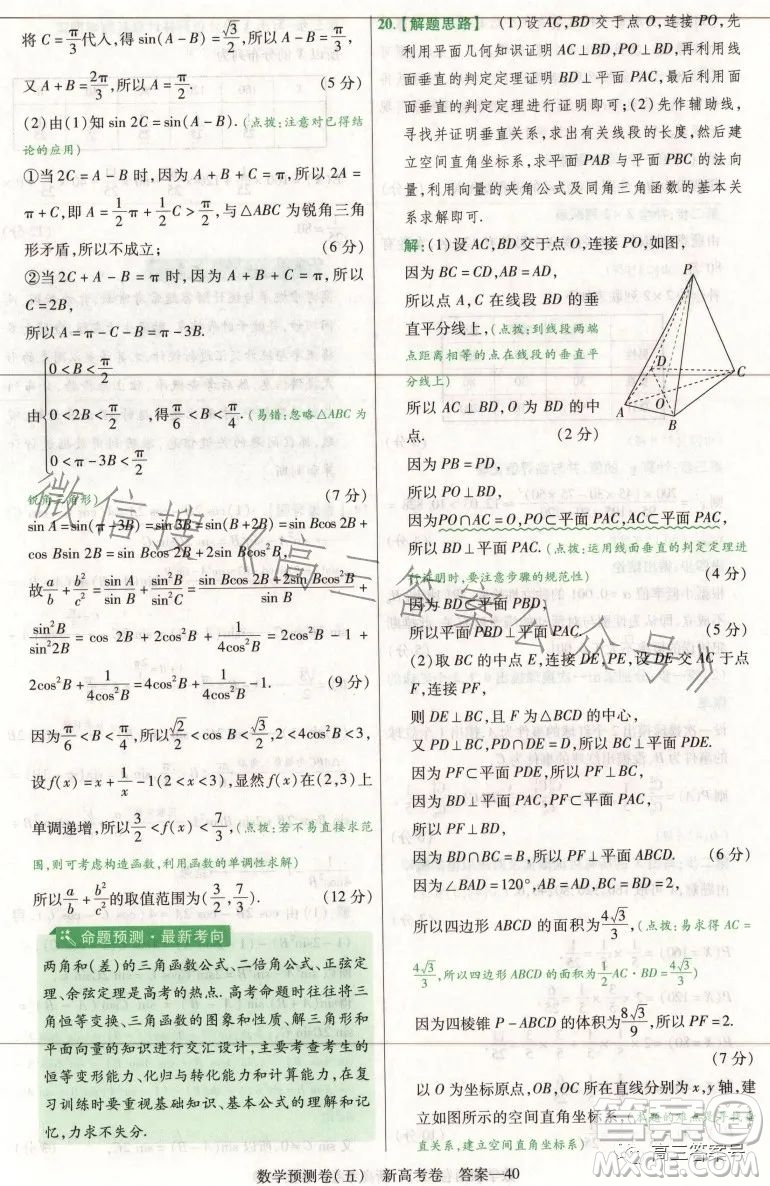 将 C=π/3代入,得 sin(A-B)=√3/2,所以A-B=π/3,
又 A+B=2π/3,所以A=π/2. (5分)
(2)由(1)知 sin 2C=sin(A-B).(点拨:注意对已得结
论的应用)
①当2C=A-B时,因为A+B+C=π,所以2A=
π+C,即A=1/2π+1/2C>π/2,与△ABC为锐角三角
形矛盾,所以不成立; (6分)
②当2C+A-B=π时,因为A+B+C=π,所以
C=2B,
所以A=π-C-B=π-3B.
由{0<B<π/2
0<2B<π/2
0<π-3B<π/2
,得π/6<B<π/4.(易错:忽略△ABC为
锐角三角形) (7分)
sin A=sin(π-3B)=sin3B=sin(B+2B)=sin Bcos 2B+
cos Bsin 2B=sin Bcos 2B+2sin Bcos²B,
故a/b+b²/c²=sin A/sin B+sin²B/sin²C=(sin Bcos 2B+2sin Bcos²B)/sin B+
sin²B/sin²2B=cos 2B+2cos²B+1/4cos²B=2cos²B-1+
2cos²B+1/4cos²B=4cos²B+1/4cos²B-1. (9分)
因为π/6<B<π/4,所以√2/2<cos B<√3/2,所以2<4cos²B<3,
设f(x)=x+1/x-1(2<x<3),显然f(x)在(2,3)上
单调递增,所以3/2<f(x)<7/3,(点拨:若不易直接求范
围,则可考虑构造函数,利用函数的单调性求解)
所以a/b+b²/c²的取值范围为(3/2,7/3). (12分)
命题预测·最新考向
两角和(差)的三角函数公式、二倍角公式、正弦定
理、余弦定理是高考的热点.高考命题时往往将三
角恒等变换、三角函数的图象和性质、解三角形和
平面向量的知识进行交汇设计,主要考查考生的
恒等变形能力、化归与转化能力和计算能力.在复
习训练时要重视基础知识、基本公式的理解和记
忆,力求不失分.
20.【解题思路】 (1)设AC,BD交于点O,连接PO,先
利用平面几何知识证明AC⊥BD,PO⊥BD,再利用线
面垂直的判定定理证明BD⊥平面PAC,最后利用面
面垂直的判定定理进行证明即可;(2)先作辅助线,
寻找并证明垂直关系,求出有关线段的长度,然后建
立空间直角坐标系,求平面PAB与平面PBC的法向
量,利用向量的夹角公式及同角三角函数的基本关
系求解即可.
解:(1)设AC,BD交于点O,连接PO,如图,
因为BC=CD,AB=AD,
所以点A,C在线段BD的垂
直平分线上,(点拨:到线段两端
点距离相等的点在线段的垂直平
分线上)
所以AC⊥BD,O为BD的中
点. (2分)
P
D
C
A
O
B
因为PB=PD,
所以PO⊥BD.
因为PO∩AC=O,PO⊂平面PAC,AC⊂平面PAC,
所以BD⊥平面PAC.(点拨:运用线面垂直的判定定理进
行证明时,要注意步骤的规范性) (4分)
因为BD⊂平面PBD,
所以平面PBD⊥平面PAC. (5分)
(2)取BC的中点E,连接DE,PE,设DE交AC于点
F,连接PF,
则DE⊥BC,且F为△BCD的中心,
又PD⊥BC,PD∩DE=D,所以BC⊥平面PDE.
因为PF⊂平面PDE,所以PF⊥BC.
因为BD⊥平面PAC,PF⊂平面PAC,
所以PF⊥BD.
因为BD∩BC=B,所以PF⊥平面ABCD. (6分)
因为∠BAD=120°,AB=AD,BC=BD=2,
所以四边形ABCD的面积为4√3/3,(点拨:易求得AC=
4√3/3,所以四边形ABCD的面积为1/2AC·BD=4√3/3)
因为四棱锥P-ABCD的体积为8√3/9,所以PF=2.
(7分)
以O为坐标原点,OB,OC所在直线分别为x,y轴,建
立如图所示的空间直角坐标系.
直关系,建立空间直角坐标系)
数学预测卷(五) 新高考卷 答案—40
微信搜《高三答案公众号》
高三答案号